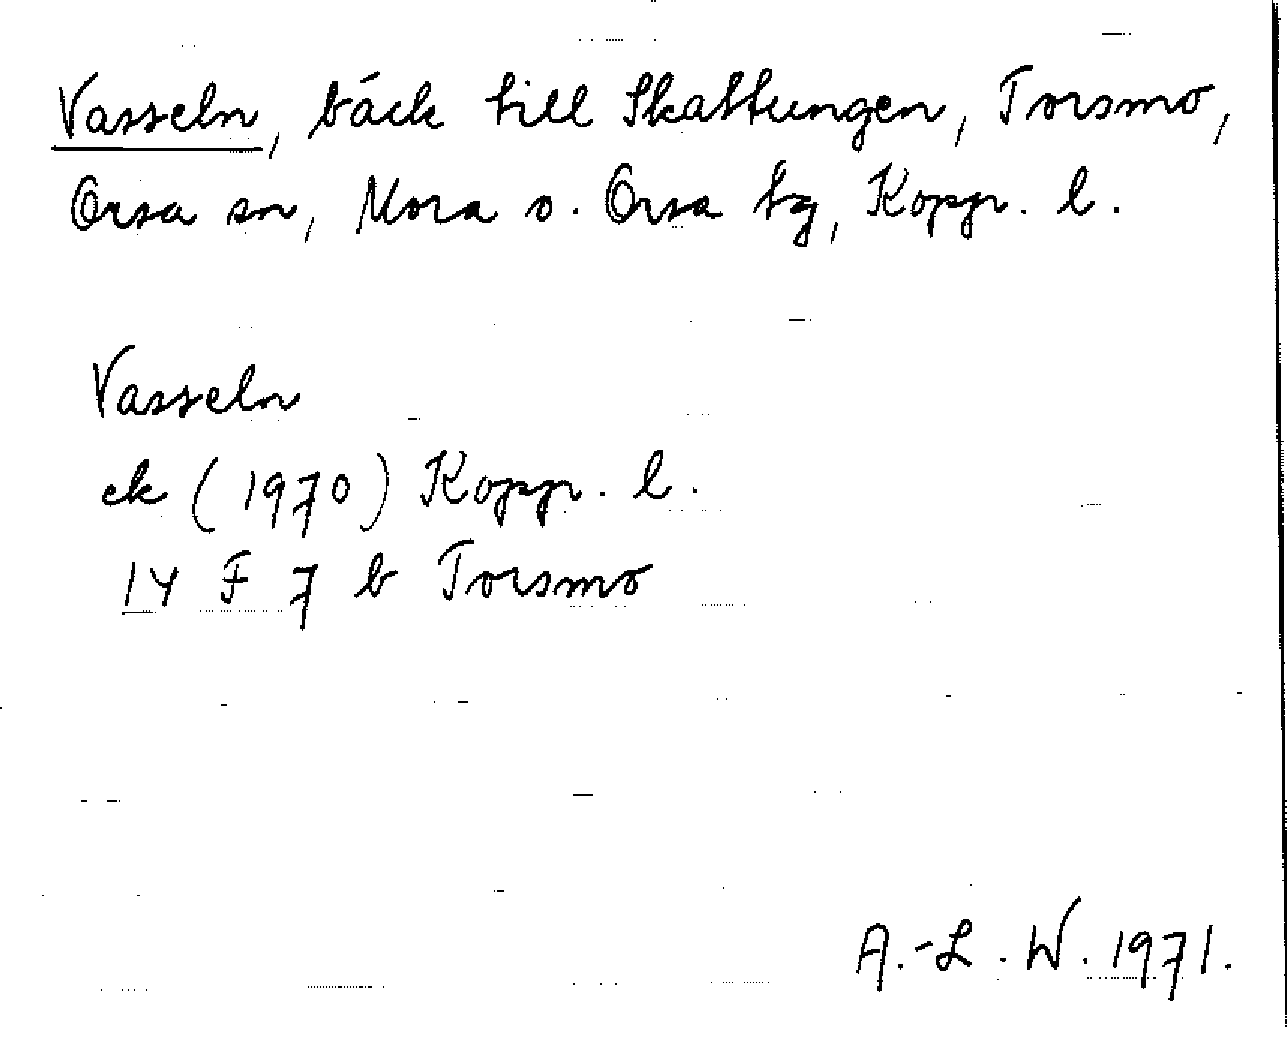 Vasseln, bäck till Skattungen, Torsmo,
Orsa sn, Mora o. Orsa tg, Koppr. l.
Vasseln
ek (1970) Koppr. l.
14 F 7 b Torsmo
A.-L. W. 1971.